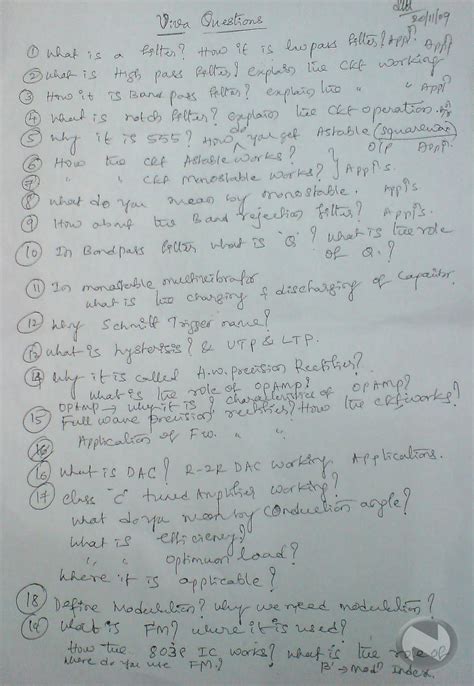 Viva Questions
20/11/09
① What is a filter? How it is lowpass filter? Appl?
② What is High pass filter? explain the CKt working Appl?
3 How it is Band pass filter? explain the " " Appl?
④ What is notch filter? explain the CKt operation.
⑤ Why it is 555? How do you get Astable (squarewave) O/p Appl?
⑥ How the CKt Astable works?
⑦ " " CKt monostable works? } Appl's.
⑧ what do you mean by monostable. Appl's
⑨ How about the Band rejection filter? Appl's.
⑩ In Bandpass filter what is 'Q'? what is the role of Q?
⑪ In monostable multivibrator
what is the charging & discharging of Capacitor.
⑫ Why Schmitt Trigger name?
⑬ what is hysterisis? & UTP & LTP.
⑭ Why it is called H.w. precision Rectifier?
what is the role of OPAmp?
OPAmp → why it is? characteristics of OPAMP?
⑮ Full wave precision rectifier? How the cktworks?
Application of Fw. " "
⑯ What is DAC? R-2R DAC working. Applications.
⑰ Class 'C' tuned Amplifier working?
What do you mean by Conduction angle?
What is efficiency?
" " Optimum load?
Where it is applicable?
⑱ Define Modulation? Why we need modulation?
⑲ What is FM? where it is used?
How the 8038 IC works? what is the role of
Where do you use FM? 'B' → Mod? Index.